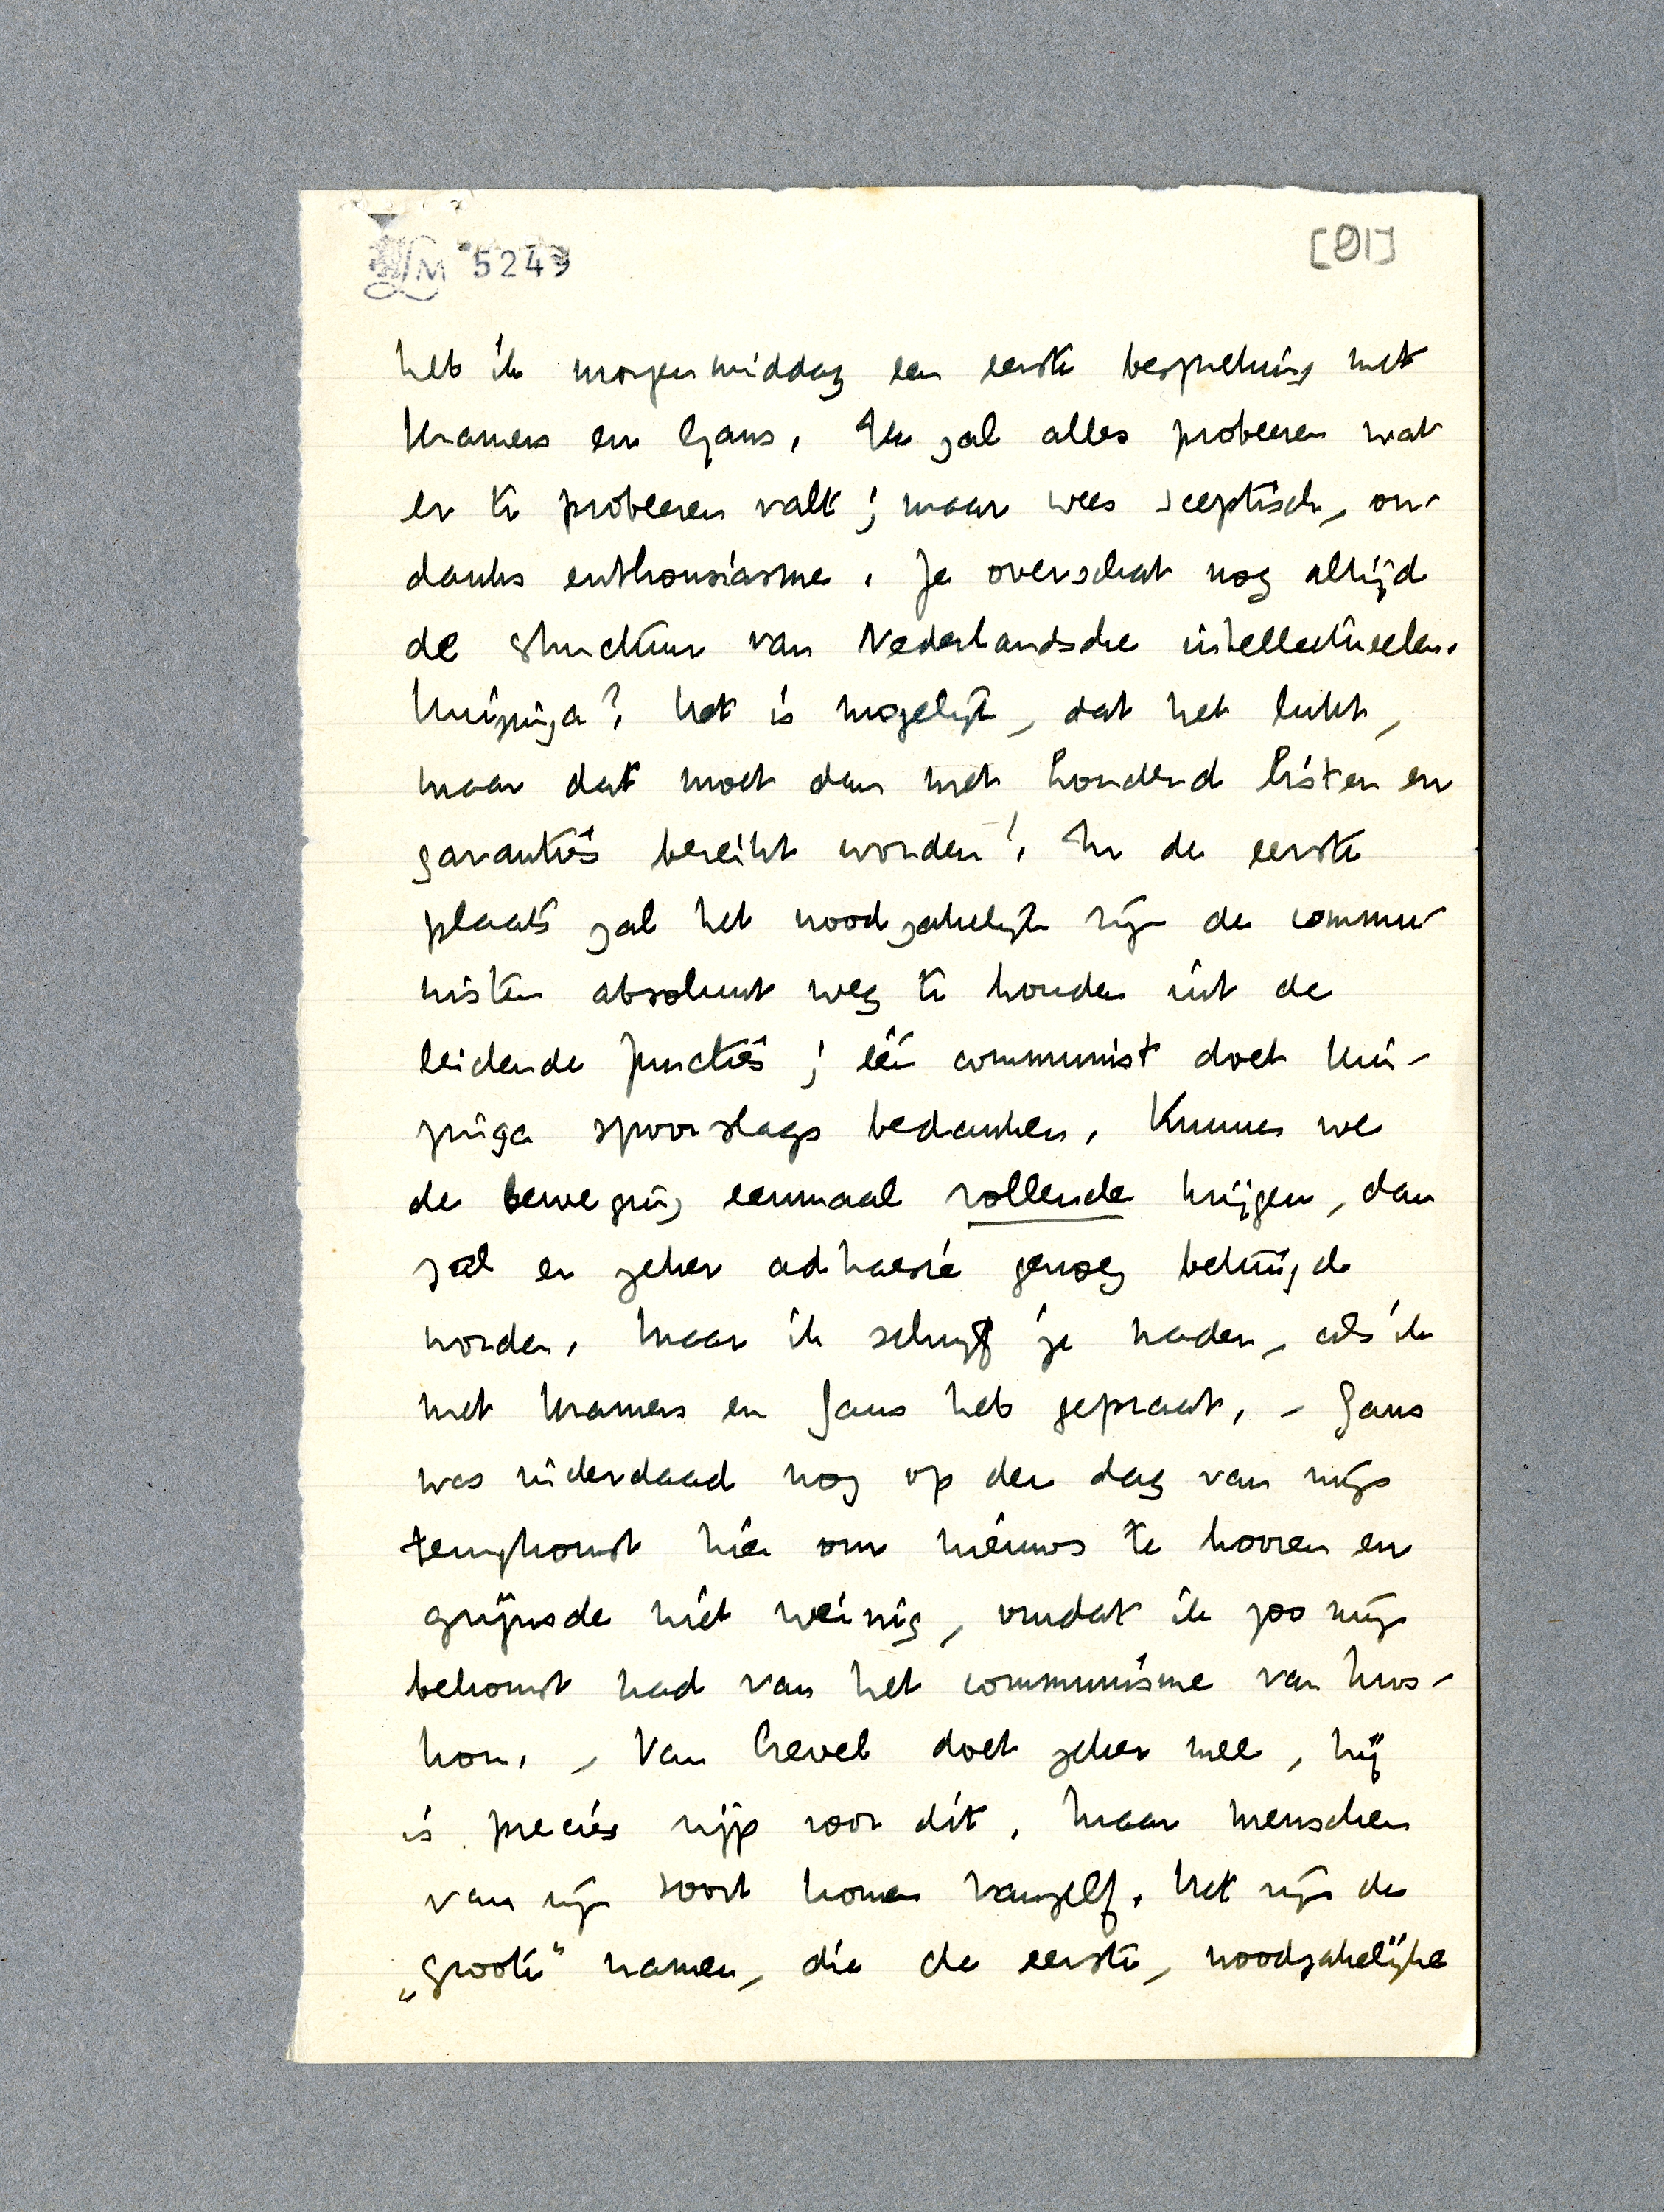 LM 5249
[91]
heb ik morgenmiddag een eerste bespreking met
Kramers en Gans. Ik zal alles probeeren wat
er te probeeren valt; maar wees sceptisch, on-
danks enthousiasme. Je overschat nog altijd
de structuur van Nederlandsche intellectueelen.
Huizinga? Het is mogelijk, dat het lukt,
maar dat moet dan met honderd listen en
garanties bereikt worden! In de eerste
plaats zal het noodzakelijk zijn de commu-
nisten absoluut weg te houden uit de
leidende functies; één communist doet Hui-
zinga spoorslags bedanken. Kunnen we
de beweging eenmaal rollende krijgen, dan
zal er zeker adhaesie genoeg betuigd
worden. Maar ik schrijf je nader, als ik
met Kramers en Gans heb gepraat. - Gans
was inderdaad nog op den dag van mijn
terugkomst hier om nieuws te hooren en
grijnsde niet weinig, omdat ik zoo mijn
bekomst had van het communisme van Mos-
kou. - Van Crevel doet zeker mee, hij
is precies rijp voor dit. Maar menschen
van zijn soort komen vanzelf. Het zijn de
„groote" namen, die de eerste, noodzakelijke